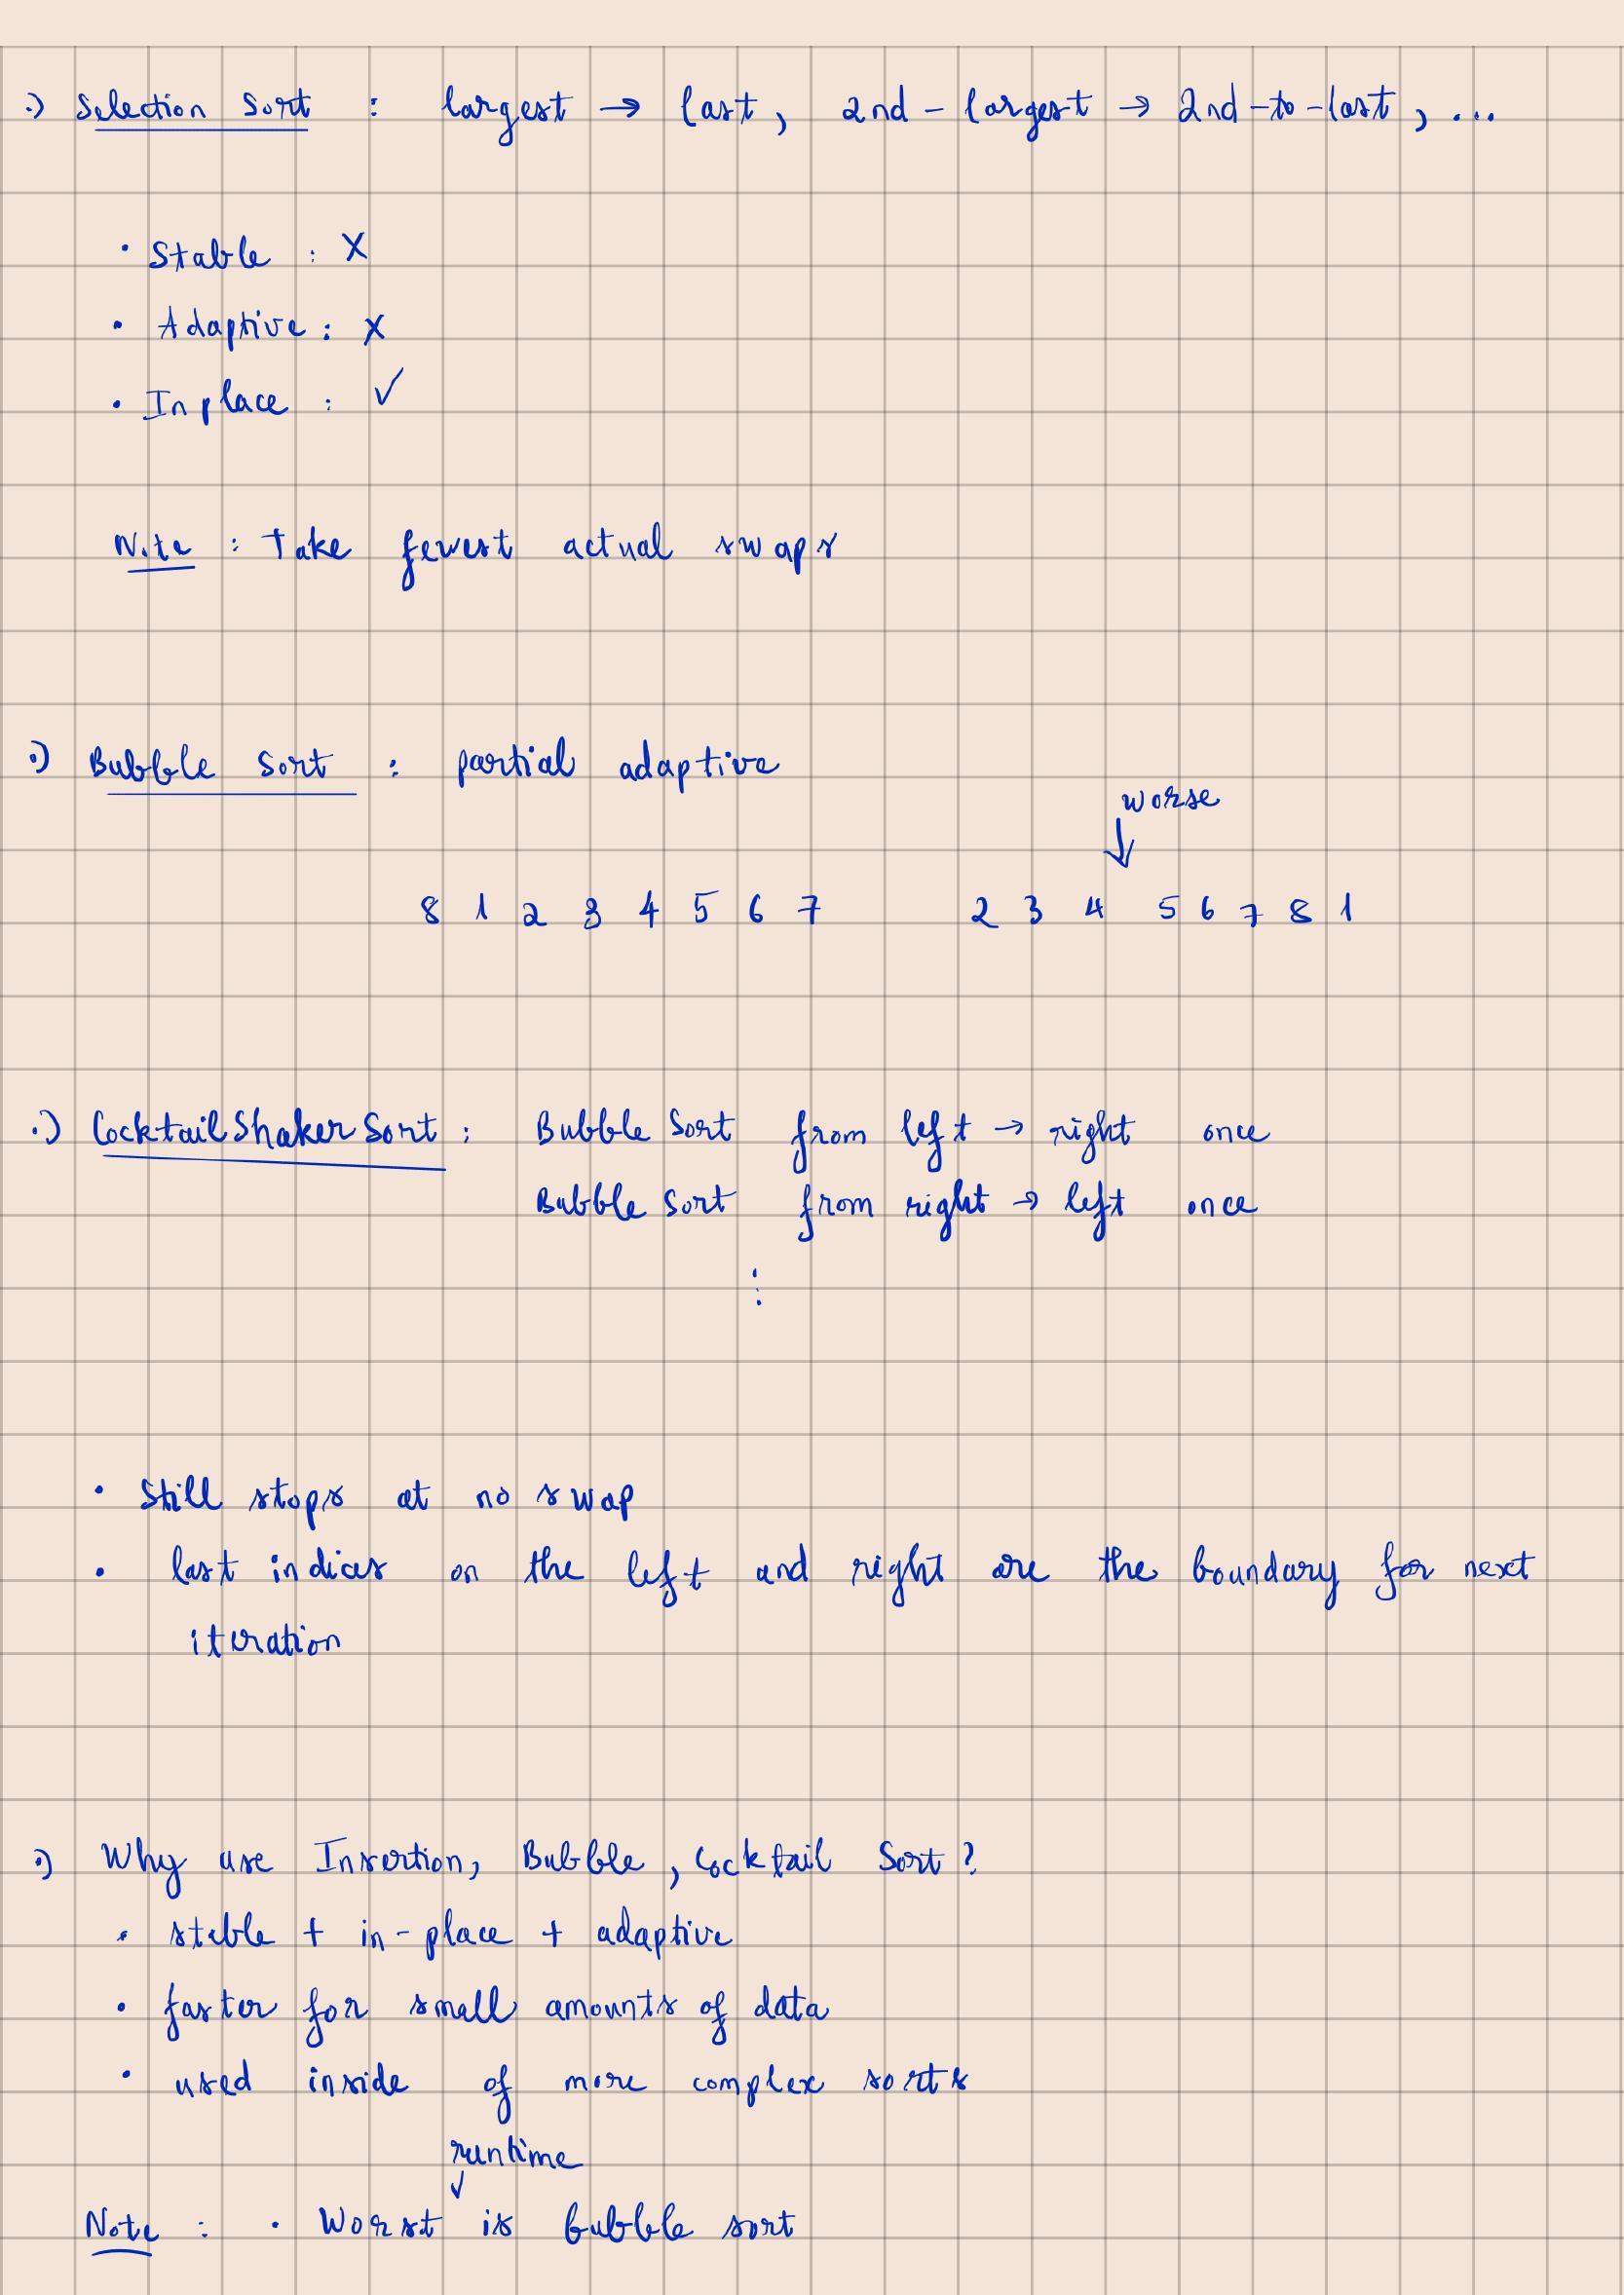 ·) Selection Sort : largest → last, 2nd-largest → 2nd-to-last, ...
· Stable : X
· Adaptive : X
· In place : ✓
Note : Take fewest actual swaps
·) Bubble Sort : partial adaptive
worse
↓
8 1 2 3 4 5 6 7 2 3 4 5 6 7 8 1
·) Cocktail Shaker Sort : Bubble Sort from left → right once
Bubble Sort from right → left once
⋮
· Still stops at no swap
· last indices on the left and right are the boundary for next
iteration
·) Why use Insertion, Bubble, Cocktail Sort?
· stable + in-place + adaptive
· faster for small amounts of data
· used inside of more complex sorts
runtime
↓
Note : · Worst is bubble sort